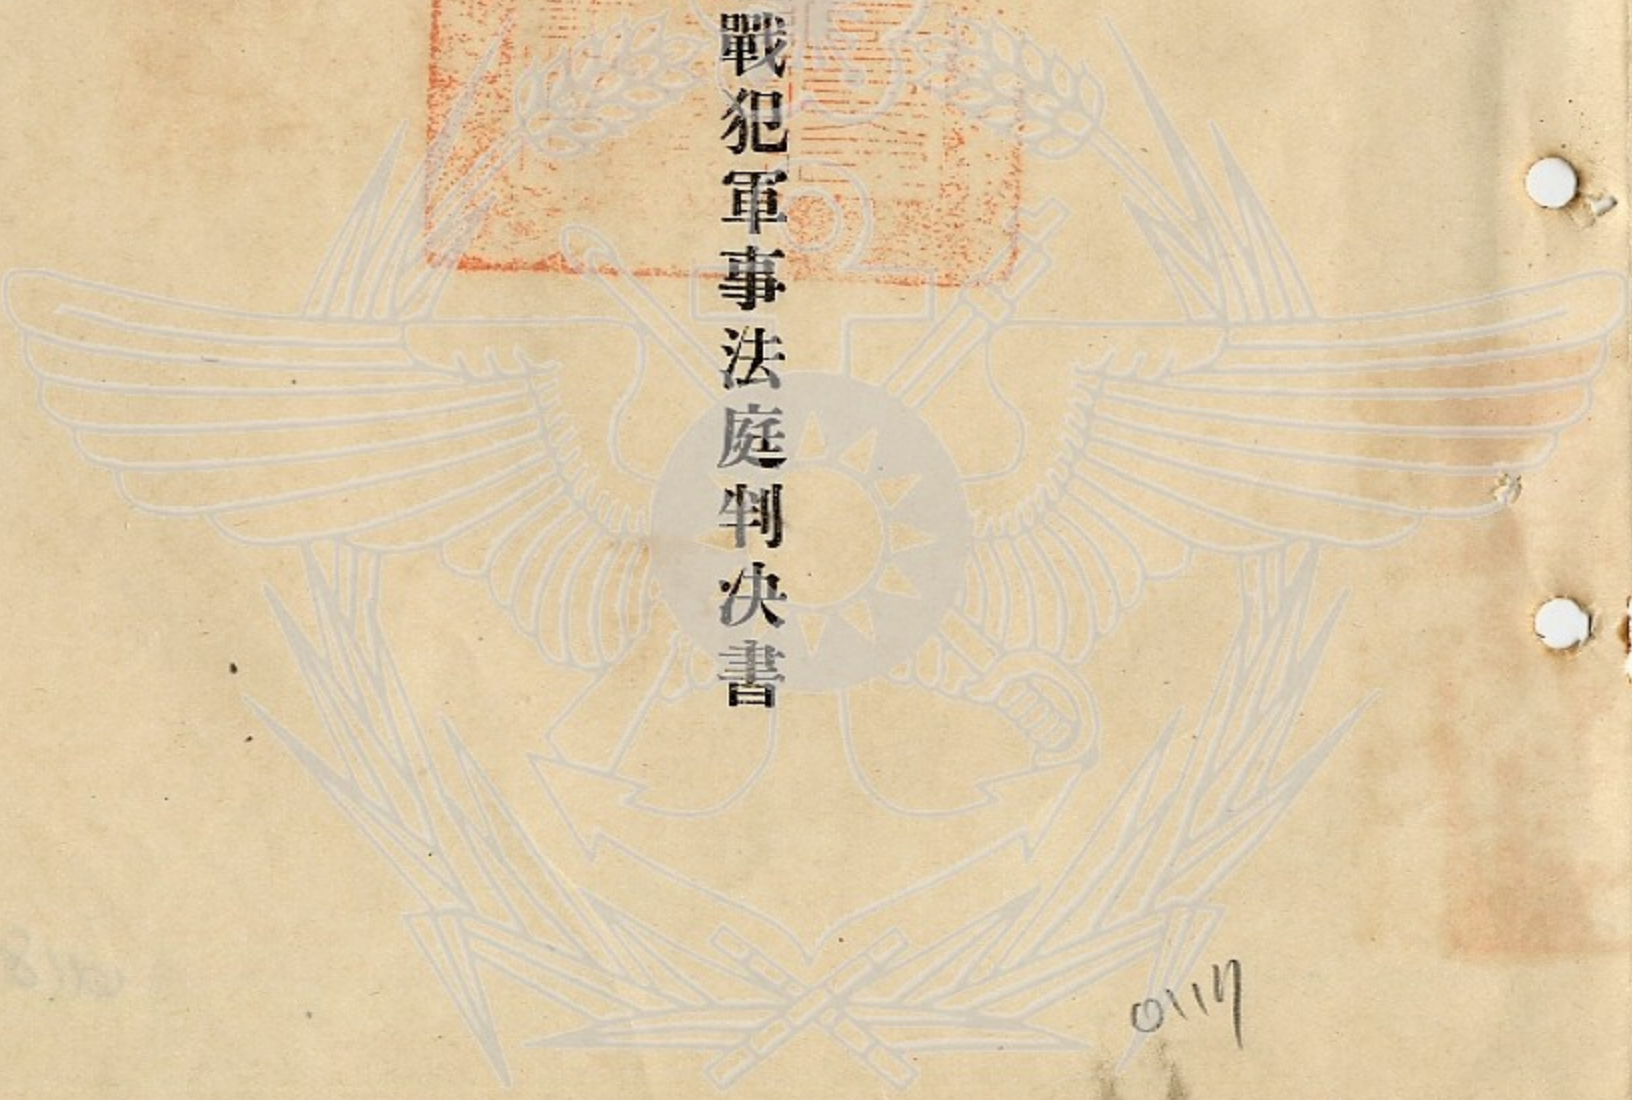 戰犯軍事法庭判决書
0117